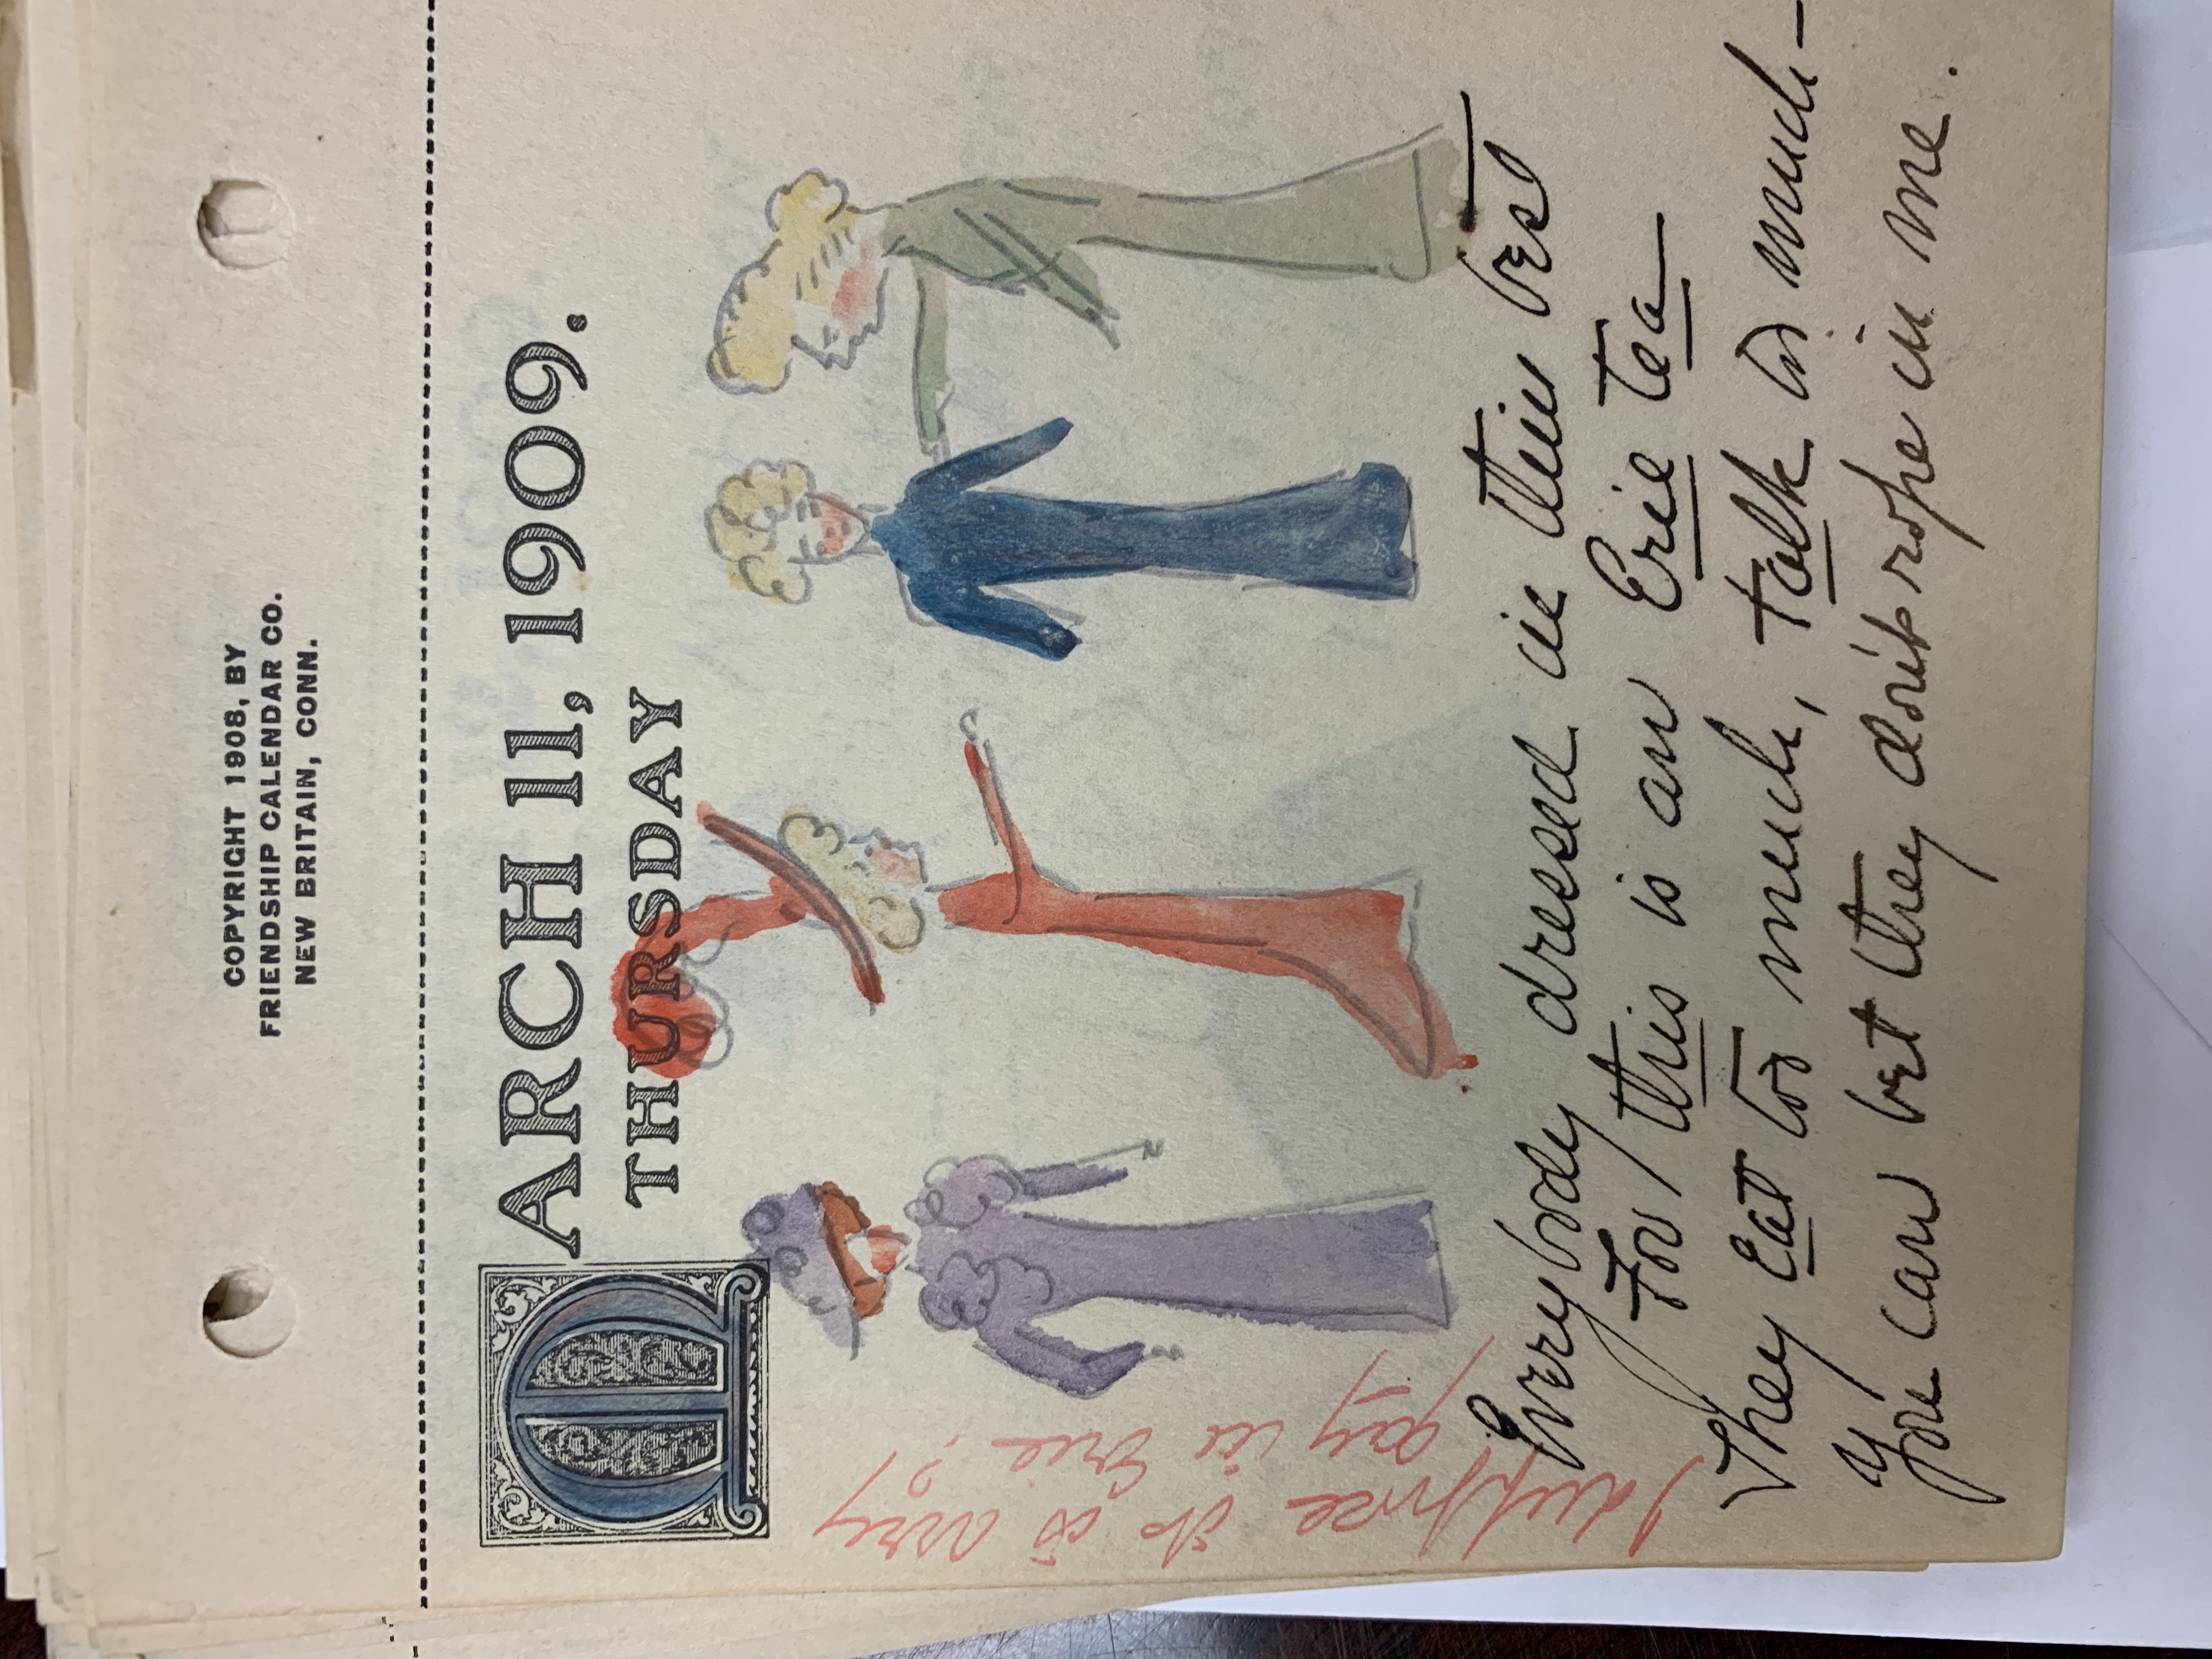 COPYRIGHT 1908, BY
FRIENDSHIP CALENDAR CO.
NEW BRITAIN, CONN.
MARCH 11, 1909.
THURSDAY
I suppose it is very
gay in Erie?!
Everybody dressed in their best —
For this is an Erie tea —
They Eat too much, talk too much —
You can bet they don't rope in me.